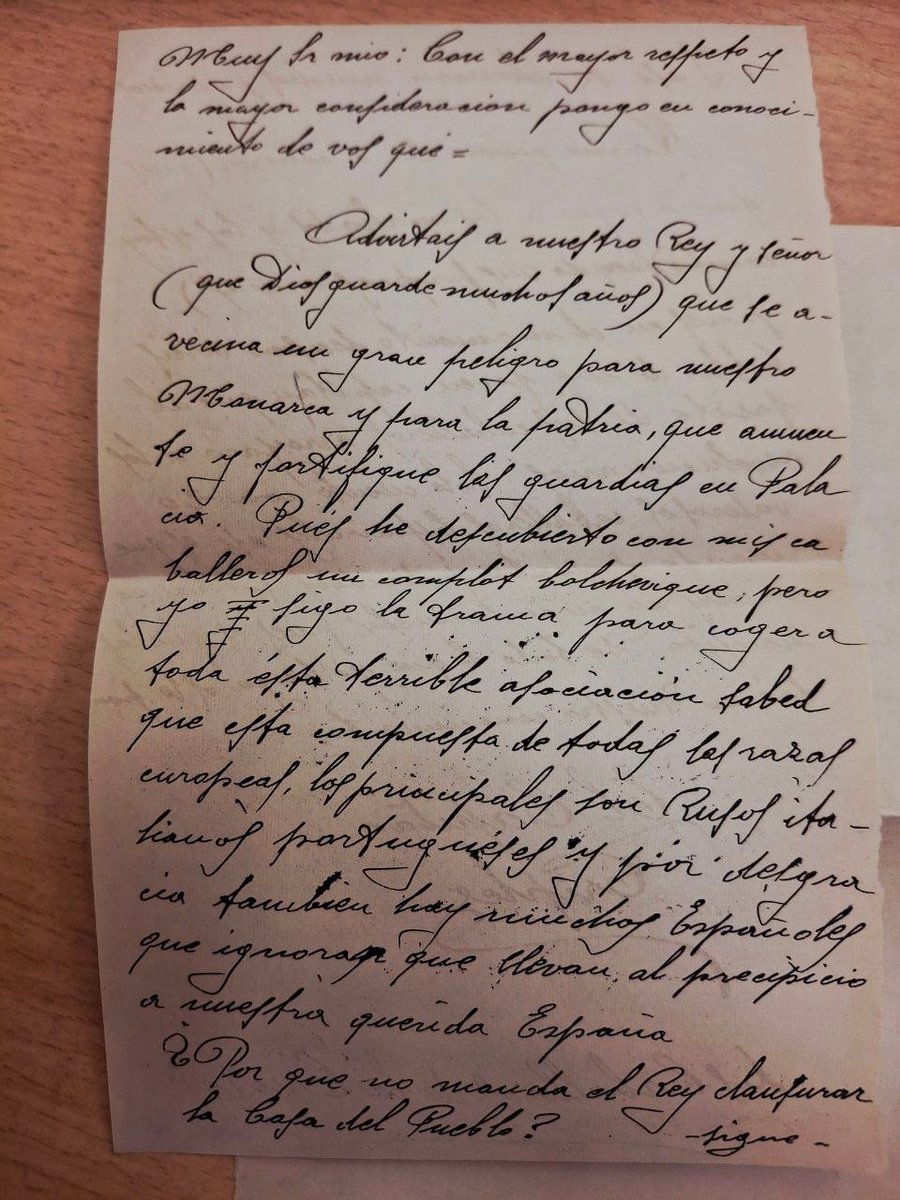 Muy Sr mio: Con el mayor respeto y
la mayor consideracion pongo en conoci-
miento de vos que =
Advirtais a nuestro Rey y señor
(que Dios guarde muchos años) que se a-
vecina un gran peligro para nuestro
Monarca y para la patria, que aumen
te y fortifique las guardias en Pala
cio. Pués he descubierto con mis ca
balleros un complót bolchevique, pero
yo sigo la trama para coger a
toda ésta terrible asociación sabed
que esta compuesta de todas las razas
europeas, los principales son Rusos ita-
lianos portugueses y por desgra
cia tambien hay muchos Españoles
que ignoran que llevan al precipicio
a nuestra querida España
¿Por que no manda el Rey clausurar
la Casa del Pueblo? -sigue-